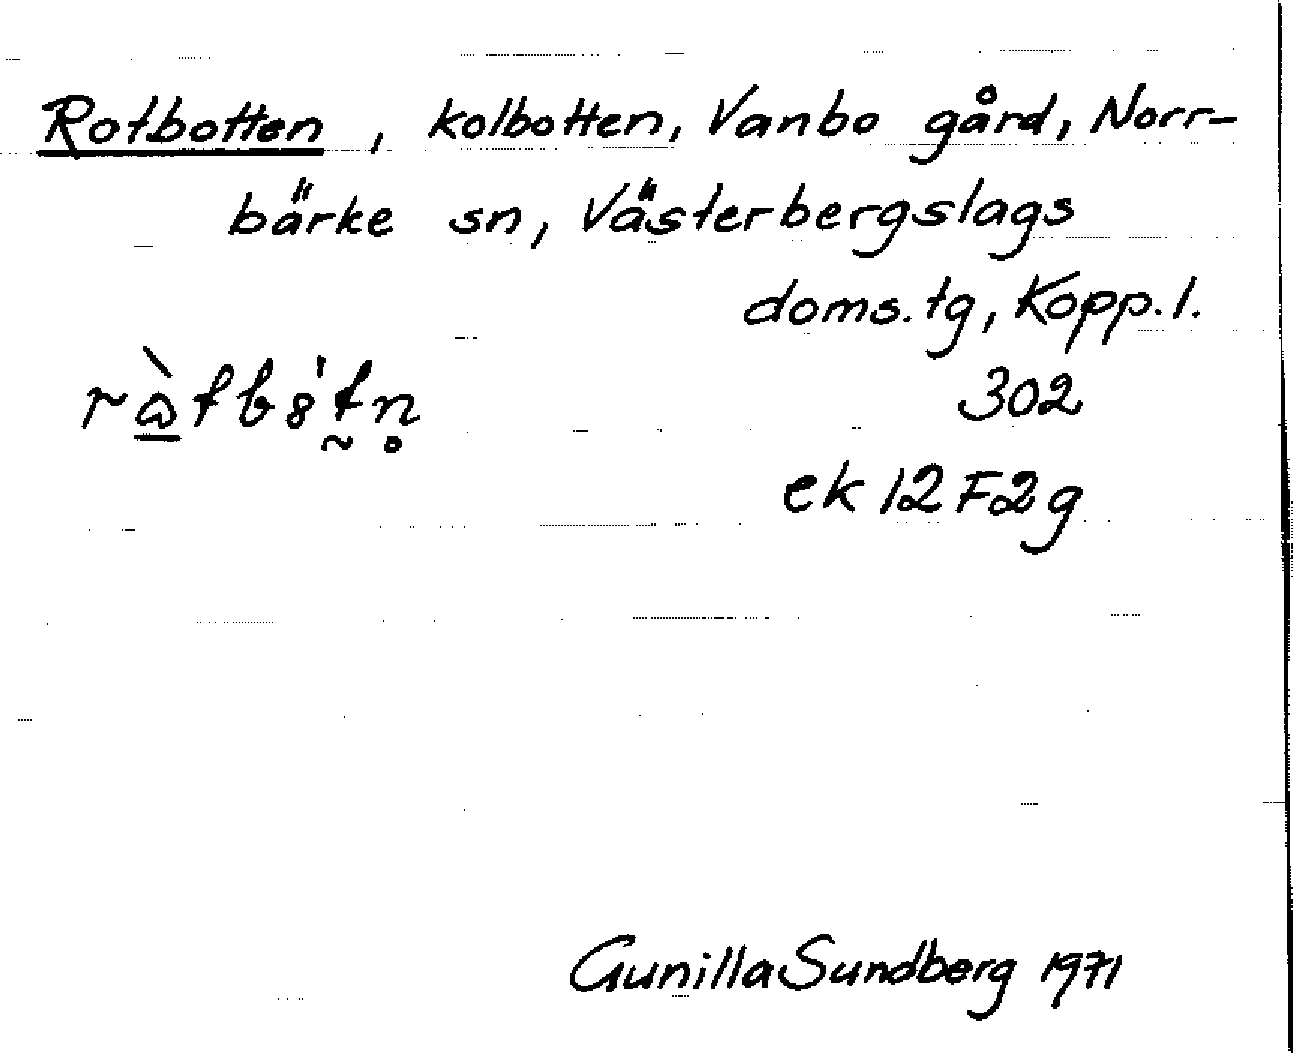 Rotbotten, kolbotten, Vanbo gård, Norr-
bärke sn, Västerbergslags
doms.tg, Kopp.l.
302
ek 12F2g
Gunilla Sundberg 1971